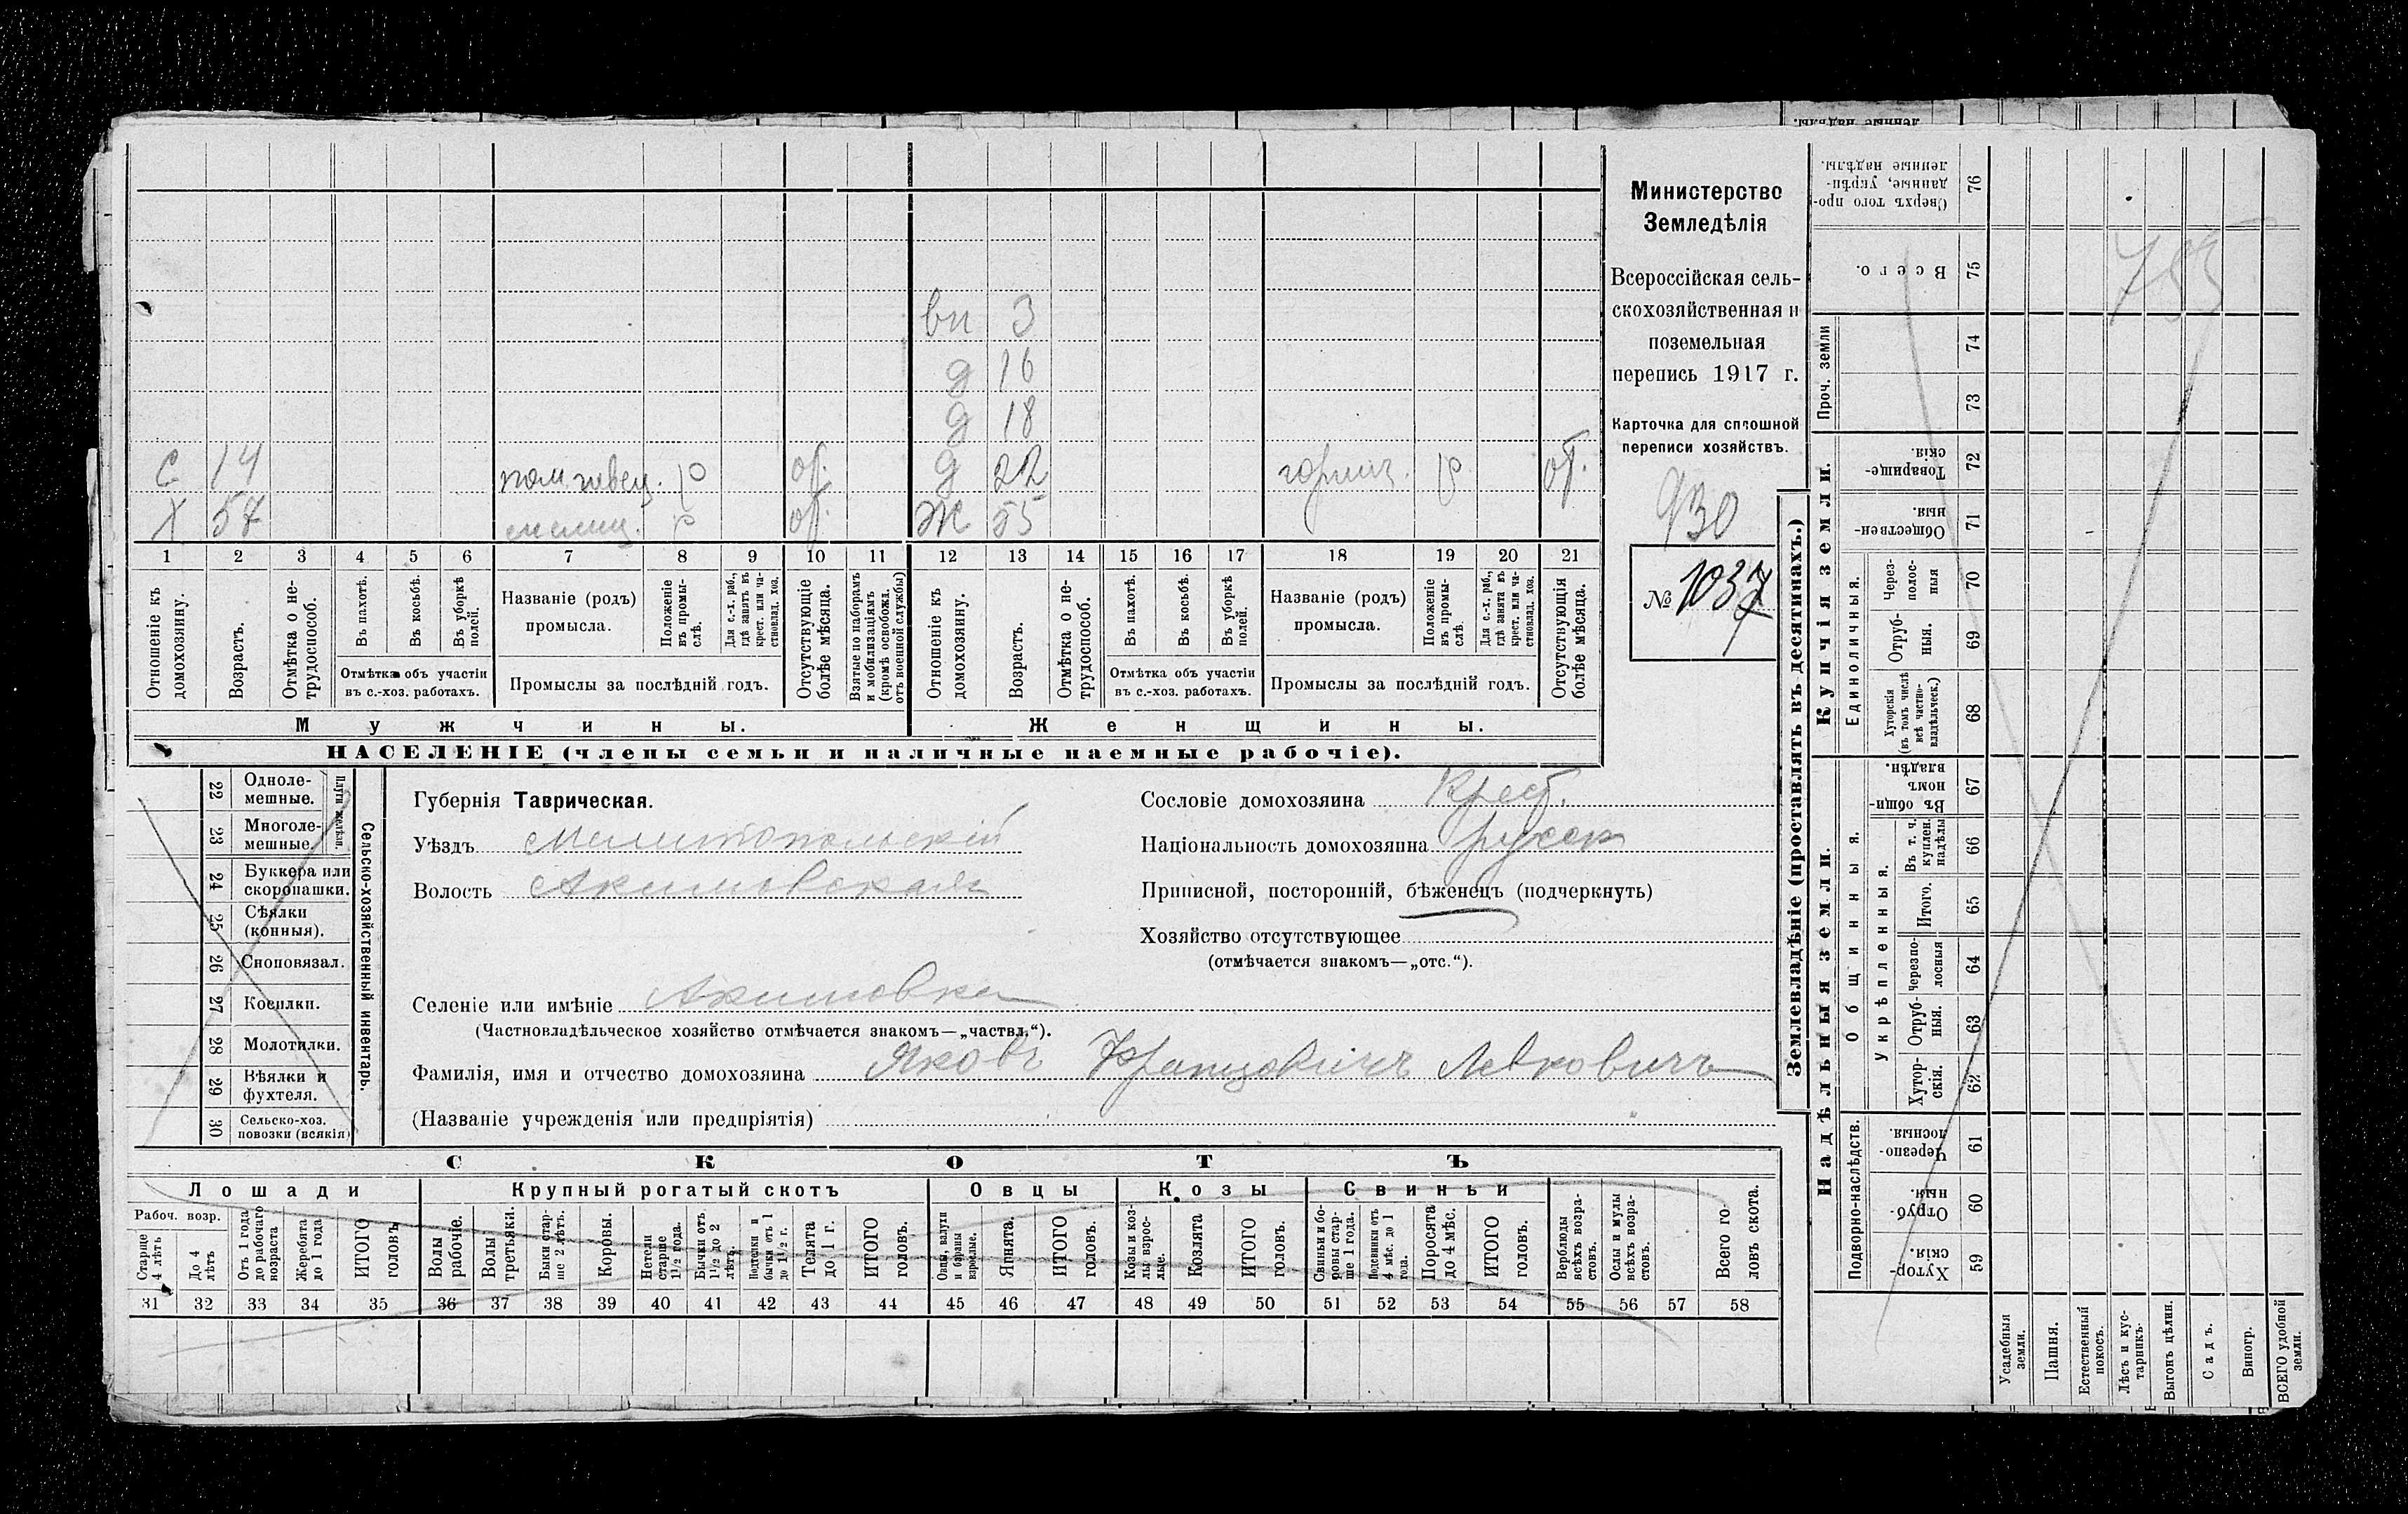 вн 3
д 16
д 18
С 14 р от. д 22 горнич. р от.
Х 57 р от. Ж 55
1 2 3 4 5 6 7 8 9 10 11 12 13 14 15 16 17 18 19 20 21
Отношеніе къ домохозяину.
Возрастъ.
Отмѣтка о не-трудоспособ.
Въ пахотѣ.
Въ косьбѣ.
Въ уборкѣ полей.
Отмѣтка объ участіи
въ с.-хоз. работахъ.
Названіе (родъ)
промысла.
Положеніе въ промы-слѣ.
Для с.-х. раб., гдѣ занятъ въ крест. или ча-стновлад. хоз.
Промыслы за послѣдній годъ.
Отсутствующіе болѣе мѣсяца.
Взятые по наборамъ и мобилизаціямъ (кромѣ освобожд. отъ военной службы)
Отношеніе къ домохозяину.
Возрастъ.
Отмѣтка о не-трудоспособ.
Въ пахотѣ.
Въ косьбѣ.
Въ уборкѣ полей.
Отмѣтка объ участіи
въ с.-хоз. работахъ.
Названіе (родъ)
промысла.
Положеніе въ промы-слѣ.
Для с.-х. раб., гдѣ занята въ крест. или ча-стновлад. хоз.
Промыслы за послѣдній годъ.
Отсутствующія болѣе мѣсяца.
Мужчины.
Женщины.
НАСЕЛЕНІЕ (члены семьи и наличные наемные рабочіе).
Министерство
Земледѣлія
Всероссійская сель-
скохозяйственная и
поземельная
перепись 1917 г.
Карточка для сплошной
переписи хозяйствъ.
930
№ 1037
22 Одноле-мешные.
23 Многоле-мешные.
Плуги желѣзн.
24 Буккера или скоропашки.
25 Сѣялки (конныя).
26 Сноповязал.
27 Косилки.
28 Молотилки.
29 Вѣялки и фухтеля.
30 Сельско-хоз. повозки (всякія)
Сельско-хозяйственный инвентарь.
Губернія Таврическая.
Уѣздъ Мелитопольскій
Волость Акимовская
Сословіе домохозяина Крест.
Національность домохозяина русск
Приписной, посторонній, бѣженецъ (подчеркнуть)
Хозяйство отсутствующее
(отмѣчается знакомъ—„отс.“).
Селеніе или имѣніе Акимовка
(Частновладѣльческое хозяйство отмѣчается знакомъ—„частвл.“).
Фамилія, имя и отчество домохозяина Яковъ Францовичъ Левковичъ
(Названіе учрежденія или предпріятія)
СКОТЪ
Лошади
Рабоч. возр.
Старше 4 лѣтъ
До 4 лѣтъ
Отъ 1 года до рабочаго возраста
Жеребята до 1 года
ИТОГО головъ
Крупный рогатый скотъ
Волы рабочіе.
Волы третьяки.
Быки стар-ше 2 лѣтъ.
Коровы.
Нетели старше 1½ года.
Бычки отъ 1½ до 2 лѣтъ.
Подтелки и бычки отъ 1 до 1½ г.
Телята до 1 г.
ИТОГО головъ.
Овцы
Овцы, валухи и бараны взрослые.
Ягнята.
ИТОГО головъ.
Козы
Козы и коз-лы взрос-лые.
Козлята
ИТОГО головъ.
Свиньи
Свиньи и бо-ровы стар-ше 1 года.
Подсвинки отъ 4 мѣс. до 1 года.
Поросята до 4 мѣс.
ИТОГО головъ.
Верблюды всѣхъ возра-стовъ.
Ослы и мулы всѣхъ возра-стовъ.
Всего го-ловъ скота.
31 32 33 34 35 36 37 38 39 40 41 42 43 44 45 46 47 48 49 50 51 52 53 54 55 56 57 58
Землевладѣніе (проставлять въ десятинахъ.)
Сверхъ того про-данные, укрѣп-ленные надѣлы. 76
Всего. 75
Проч. земли
74
73
Купчія земли.
Товарище-скія. 72
Обществен-ныя. 71
Единоличныя.
Через-полос-ныя 70
Отруб-ныя. 69
Хуторскія (въ томъ числѣ всѣ частно-владѣльческ.) 68
Надѣльныя земли.
Общинныя.
Въ общи-номъ владѣн. 67
Укрѣпленныя.
Въ т. ч. куплен. надѣлы 66
Итого. 65
Черезпо-лосныя 64
Отруб-ныя. 63
Хутор-скія. 62
Подворно-наслѣдств.
Черезпо-лосныя. 61
Отруб-ныя. 60
Хутор-скія. 59
Усадебныя земли.
Пашня.
Естественный покосъ.
Лѣсъ и кус-тарникъ
Выгонъ цѣлин.
Садъ.
Виногр.
ВСЕГО удобной земли.